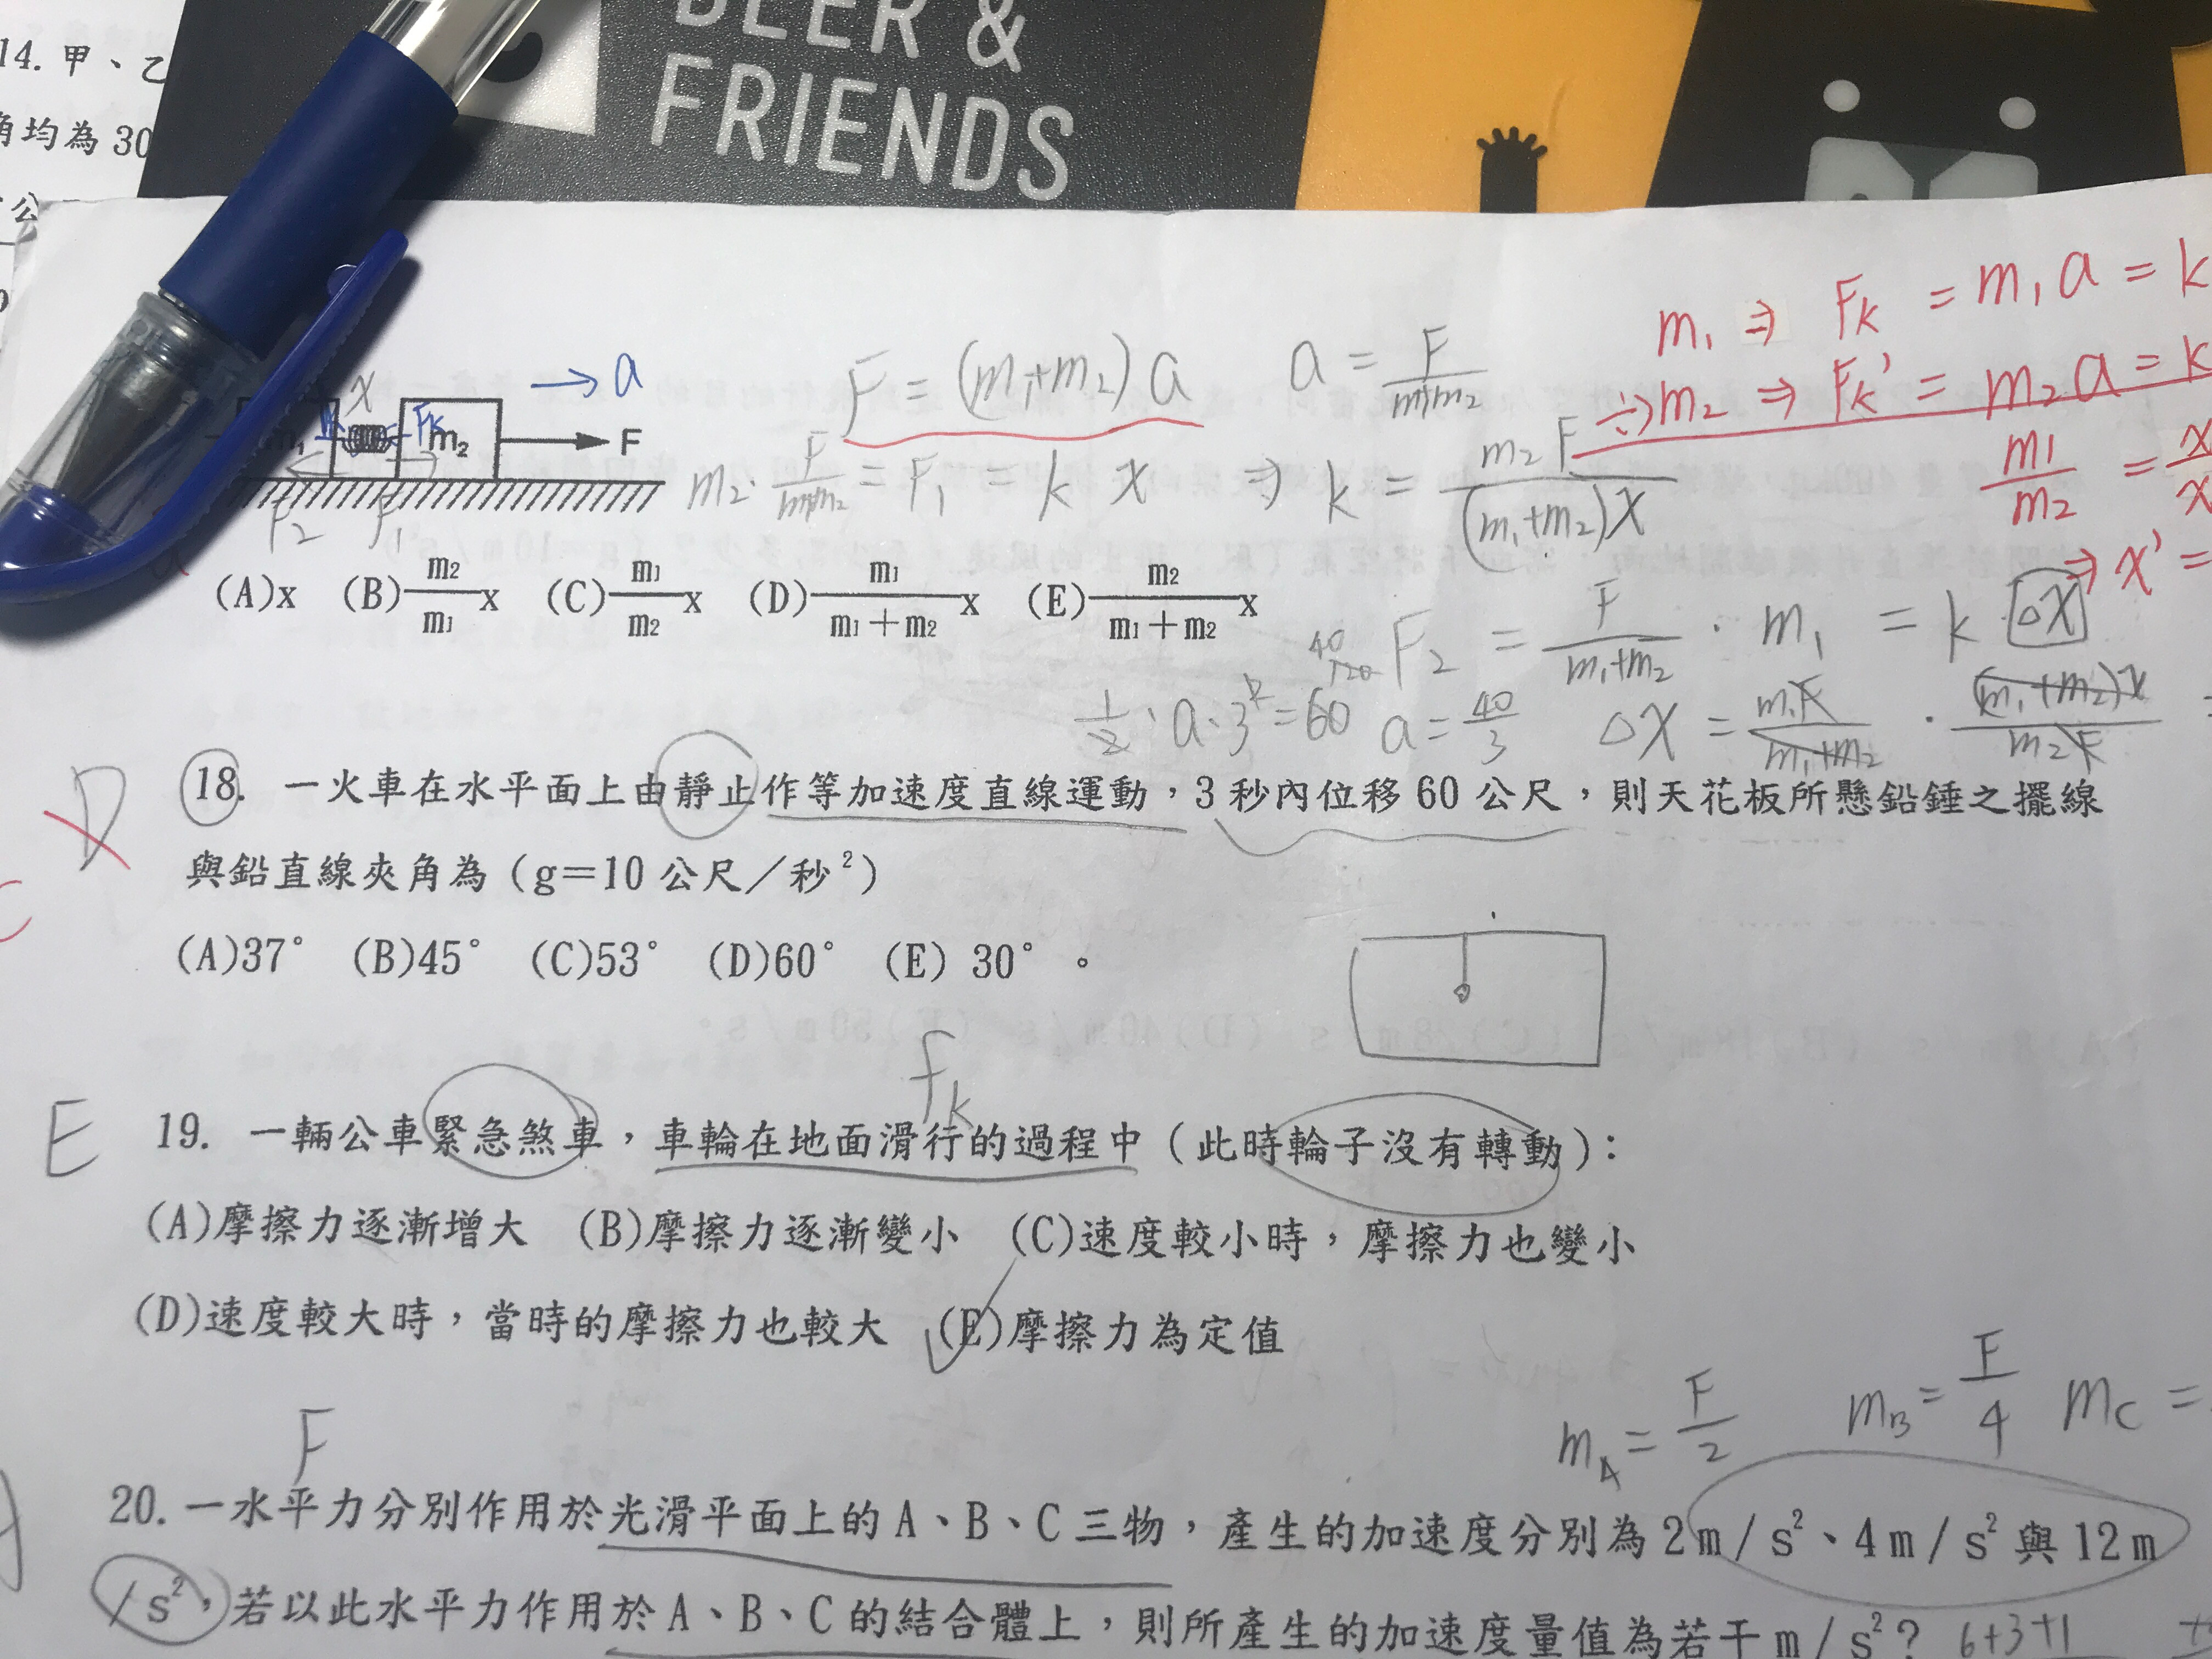 BEER &
FRIENDS
14. 甲、乙
角均為 30
公
m₁ ⇒ Fk = m₁a = k
÷) m₂ ⇒ Fk' = m₂a = k
m₁/m₂ = x/x
⇒ x' =
x
→ a
Fk
m₁ m₂ F
F₂ F₁
F = (m₁+m₂) a a = F/(m₁+m₂)
m₂· F/(m₁+m₂) = F₁ = k x ⇒ k = m₂F/((m₁+m₂)x)
(A)x (B) m₂/m₁ x (C) m₁/m₂ x (D) m₁/(m₁+m₂) x (E) m₂/(m₁+m₂) x
F₂ = F/(m₁+m₂) · m₁ = k Δx
40
120
1/2 · a · 3² = 60 a = 40/3 Δx = m₁F/(m₁+m₂) · (m₁+m₂)x/(m₂F)
D
18. 一火車在水平面上由靜止作等加速度直線運動，3 秒內位移 60 公尺，則天花板所懸鉛錘之擺線
與鉛直線夾角為（g＝10 公尺／秒²）
(A)37° (B)45° (C)53° (D)60° (E) 30° 。
fk
E
19. 一輛公車緊急煞車，車輪在地面滑行的過程中（此時輪子沒有轉動）：
(A)摩擦力逐漸增大 (B)摩擦力逐漸變小 (C)速度較小時，摩擦力也變小
(D)速度較大時，當時的摩擦力也較大 (E)摩擦力為定值
F
mA = F/2 mB = F/4 mC =
20. 一水平力分別作用於光滑平面上的 A、B、C 三物，產生的加速度分別為 2m/s²、4m/s² 與 12m
/s²，若以此水平力作用於 A、B、C 的結合體上，則所產生的加速度量值為若干 m/s²？ 6+3+1